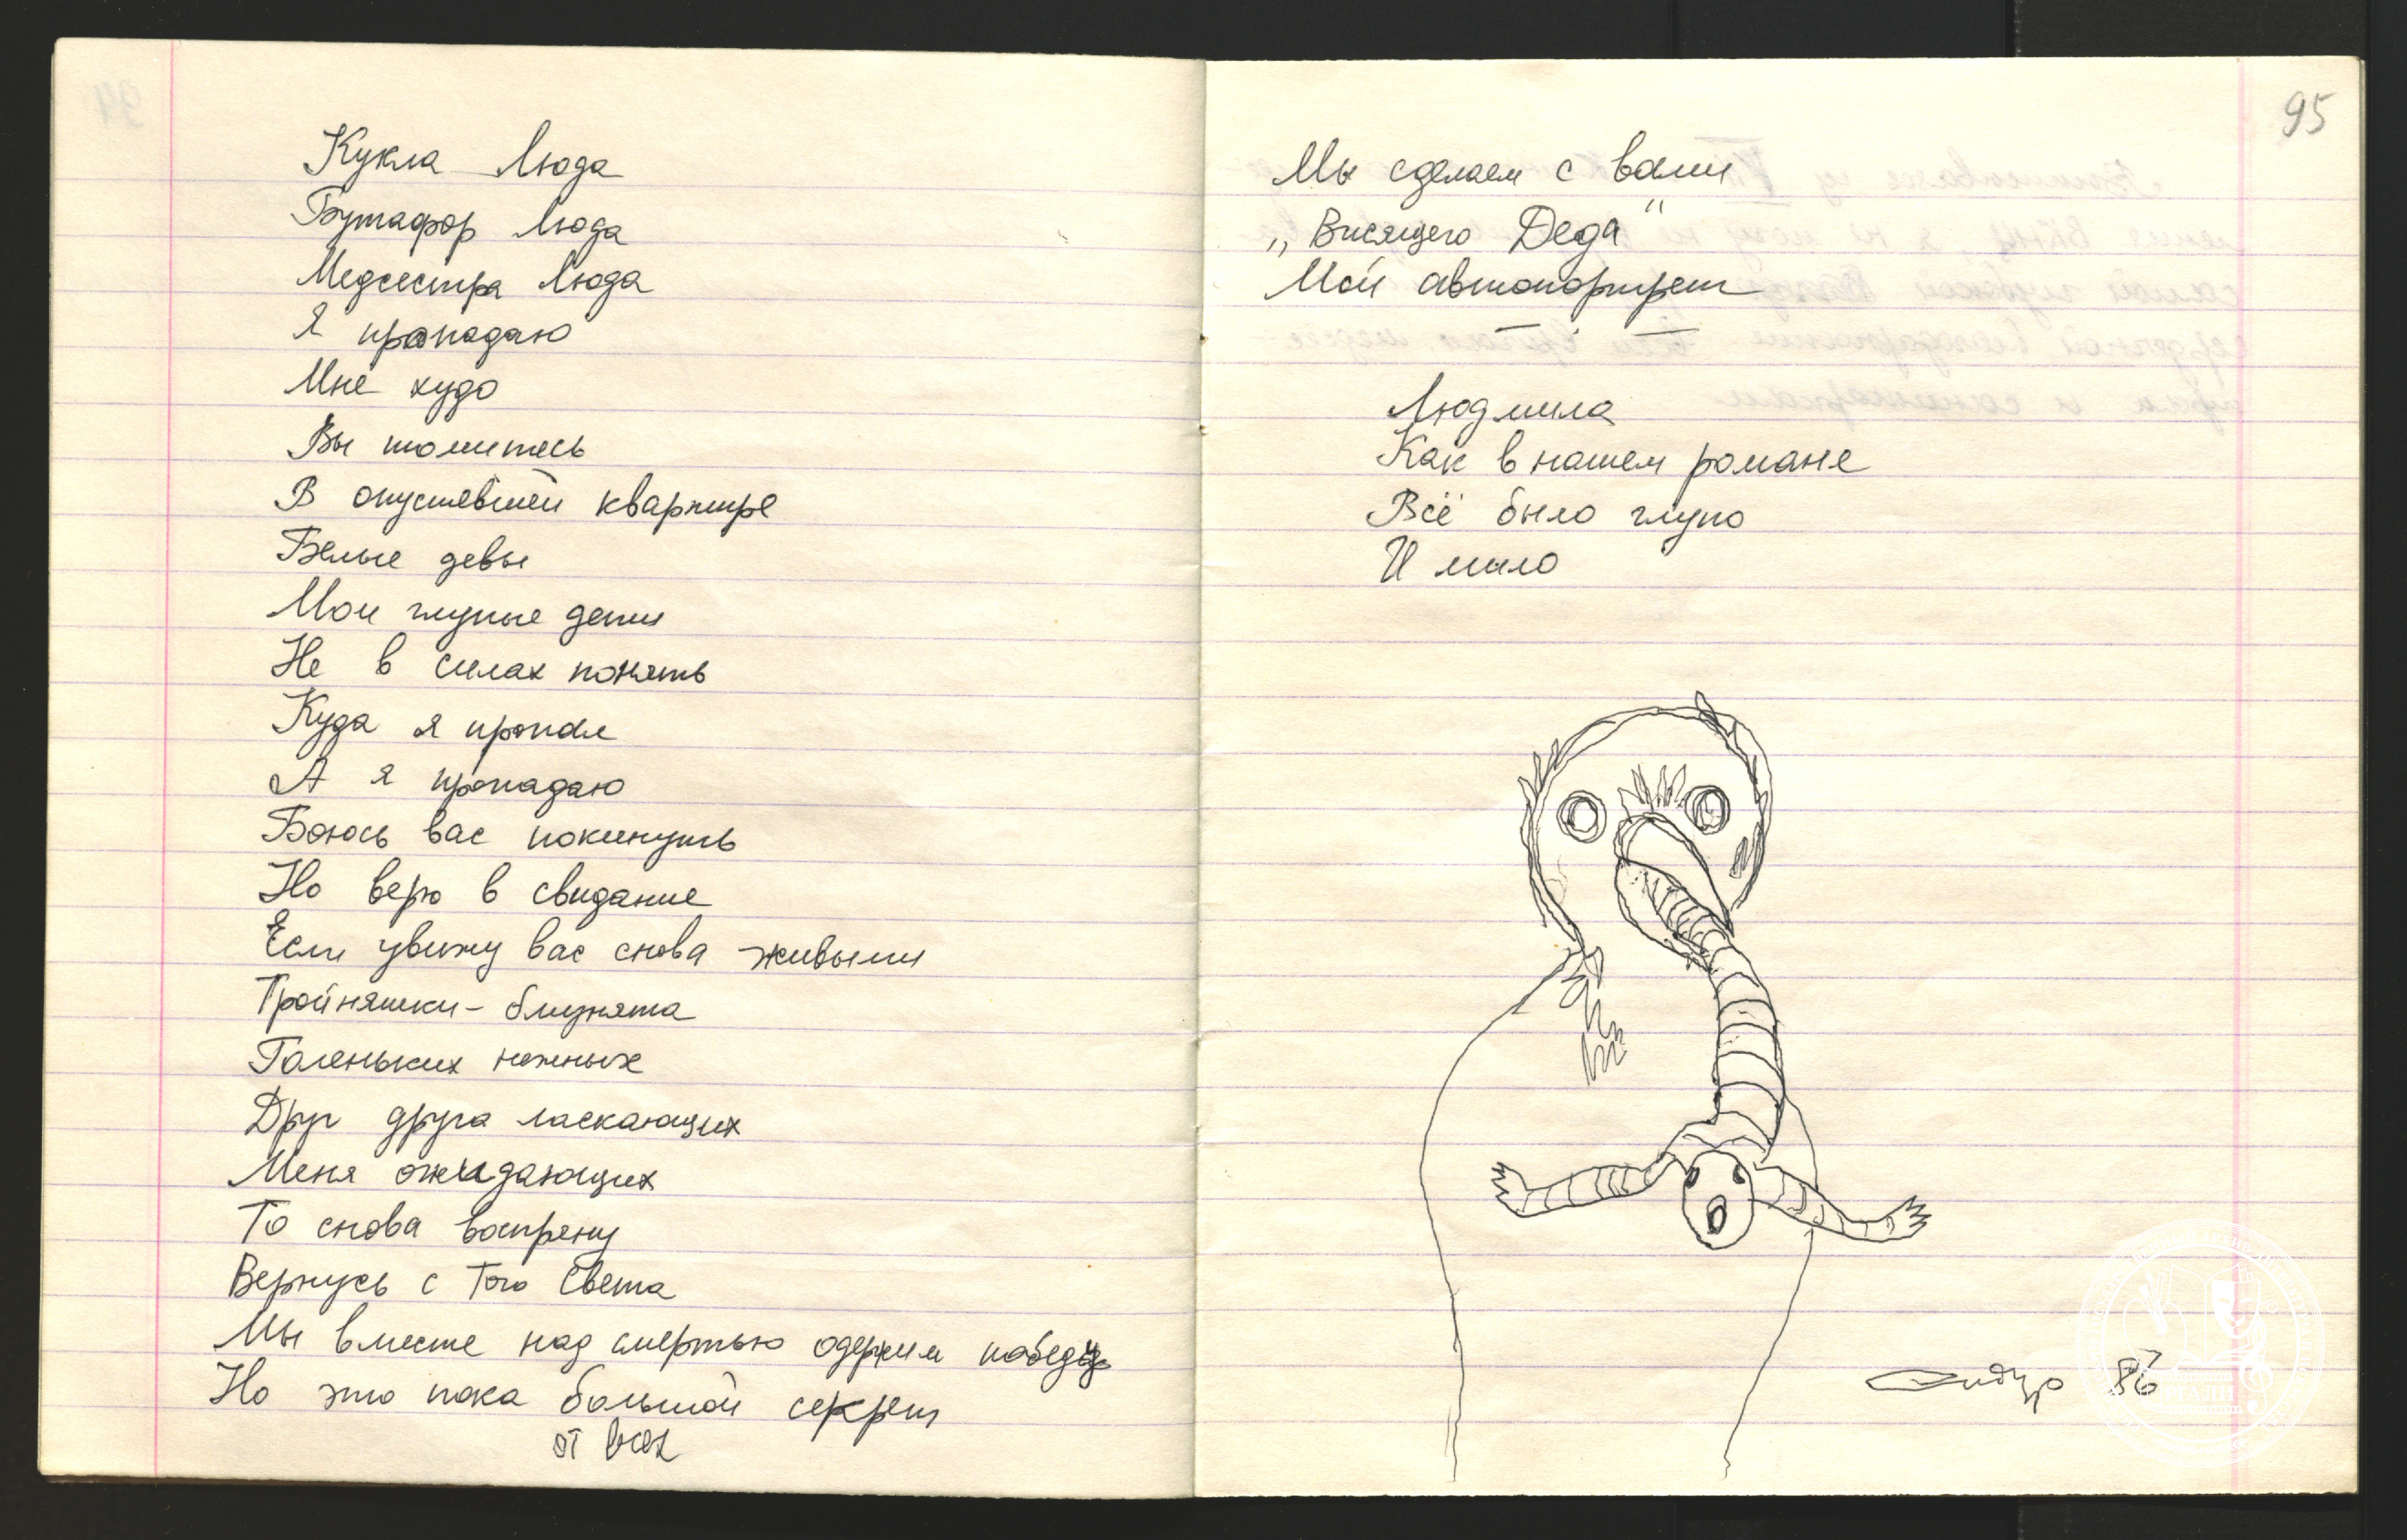 Кукла Люда
Бутафор Люда
Медсестра Люда
Я пропадаю
Мне худо
Вы томитесь
В опустевшей квартире
Белые девы
Мои глупые дети
Не в силах понять
Куда я пропал
А я пропадаю
Боюсь вас покинуть
Но верю в свидание
Если увижу вас снова живыми
Тройняшки - близнята
Голеньких нежных
Друг друга ласкающих
Меня ожидающих
То снова воспряну
Вернусь с Того Света
Мы вместе над смертью одержим победу
Но это пока большой секрет
от всех
95
Мы сделаем с вами
„Висящего Деда"
Мой автопортрет
Людмила
Как в нашем романе
Всё было глупо
И мило
86